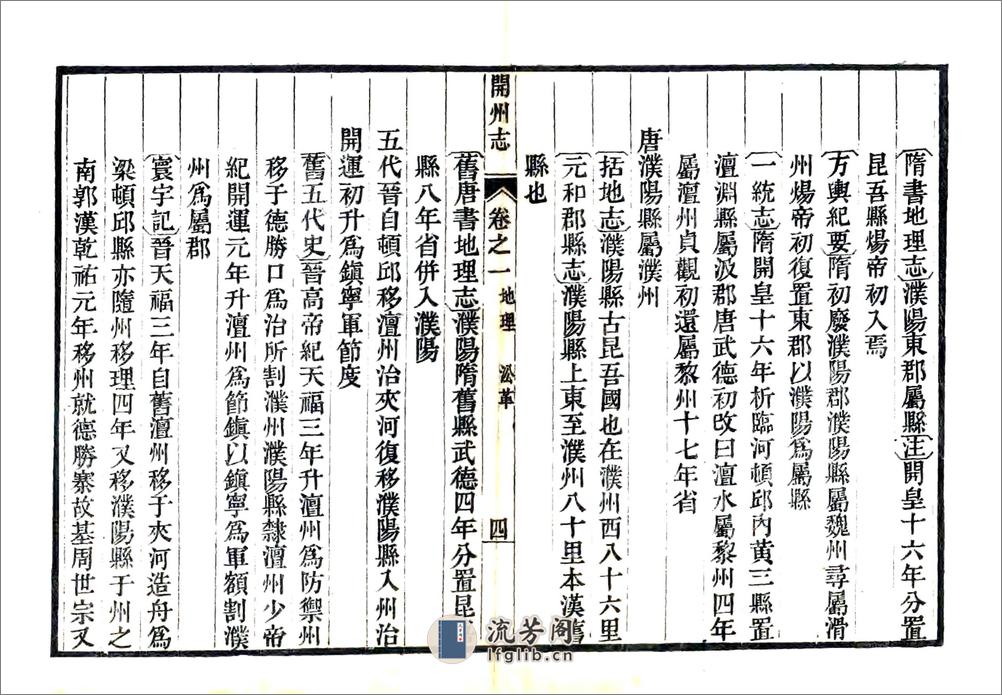 隋書地理志濮陽東郡屬縣注開皇十六年分置
昆吾縣煬帝初入焉
方輿紀要隋初廢濮陽郡濮陽縣屬魏州尋屬滑
州煬帝初復置東郡以濮陽爲屬縣
一統志隋開皇十六年析臨河頓邱內黃三縣置
澶淵縣屬汲郡唐武德初改曰澶水屬黎州四年
屬澶州貞觀初還屬黎州十七年省
唐濮陽縣屬濮州
括地志濮陽縣古昆吾國也在濮州西八十六里
元和郡縣志濮陽縣上東至濮州八十里本漢舊
縣也
開州志 卷之一 地理 沿革 四
舊唐書地理志濮陽隋舊縣武德四年分置昆
縣八年省併入濮陽
五代晉自頓邱移澶州治夾河復移濮陽縣入州治
開運初升爲鎮寧軍節度
舊五代史晉高帝紀天福三年升澶州爲防禦州
移于德勝口爲治所割濮州濮陽縣隸澶州少帝
紀開運元年升澶州爲節鎮以鎮寧爲軍額割濮
州爲屬郡
寰宇記晉天福三年自舊澶州移于夾河造舟爲
梁頓邱縣亦隨州移理四年又移濮陽縣于州之
南郭漢乾祐元年移州就德勝寨故基周世宗又
流芳阁
lfglib.cn